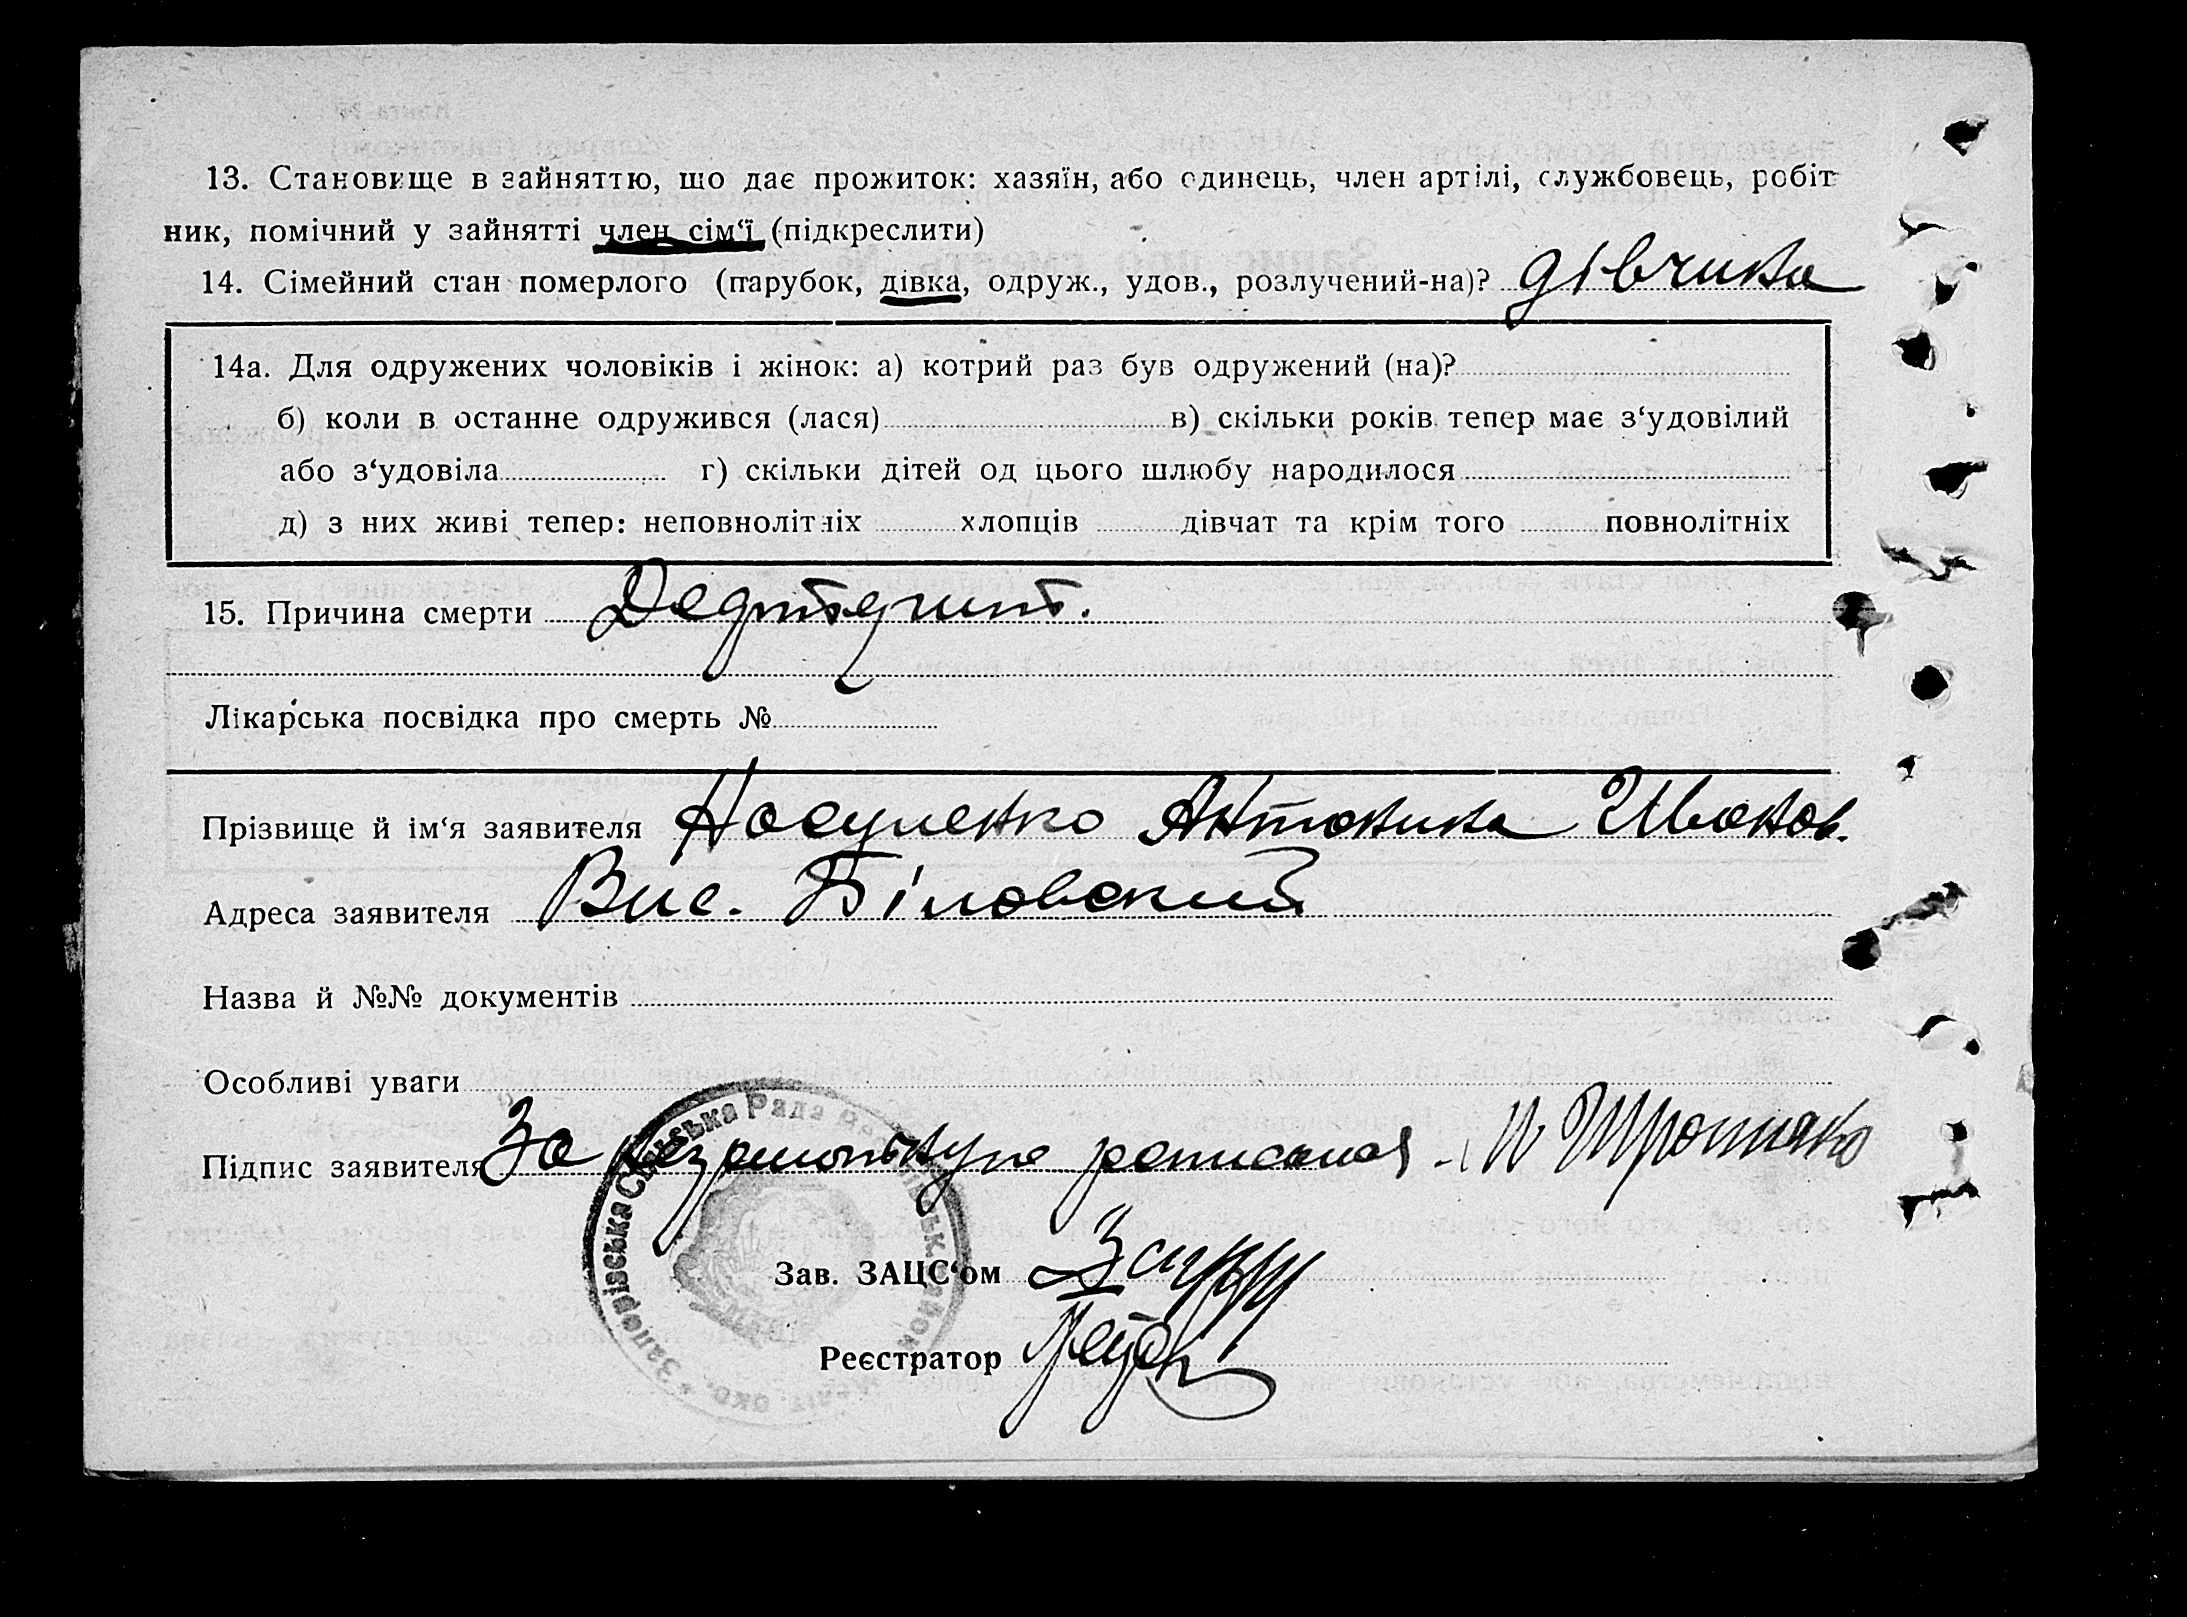 13. Становище в зайняттю, що дає прожиток: хазяїн, або одинець, член артілі, службовець, робіт
ник, помічний у зайнятті член сім‘ї (підкреслити)
14. Сімейний стан померлого (парубок, дівка, одруж., удов., розлучений-на)? дівчина
14а. Для одружених чоловіків і жінок: а) котрий раз був одружений (на)?
б) коли в останне одружився (лася) в) скільки років тепер має з‘удовілий
або з‘удовіла г) скільки дітей од цього шлюбу народилося
д) з них живі тепер: неповнолітніх хлопців дівчат та крім того повнолітніх
15. Причина смерти
Лікарська посвідка про смерть №
Прізвище й ім‘я заявителя Носуленко Антонина Иванов.
Адреса заявителя Вис. Біловский
Назва й №№ документів
Особливі уваги
Підпис заявителя За розписался
Зав. ЗАЦС‘ом
Реєстратор